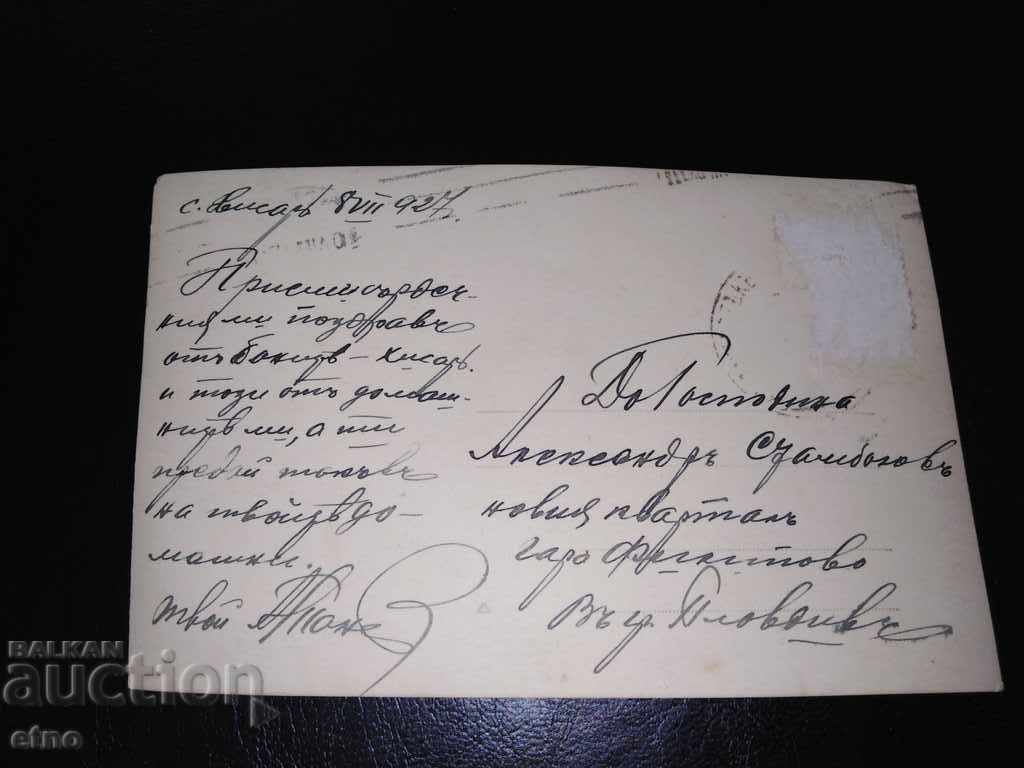 с. Хисаръ 8 VII 927.
Приемисърдеч-
ния ми поздравъ
отъ банитѣ - Хисаръ.
и този отъ домаш-
нитѣ ми, а ти
предай такъвъ
на твоитѣ до-
машни.
твой
До Господина
Александръ Стамболовъ
новия кварталъ
гара Филипово
Въ гр. Пловдивъ
BALKAN
auction
etno